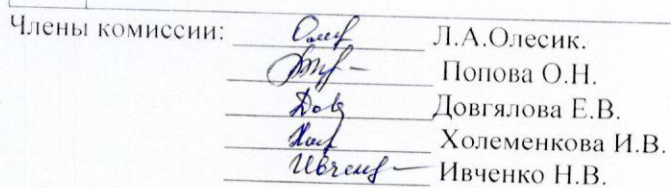 Члены комиссии: Л.А.Олесик.
Попова О.Н.
Дов Довгялова Е.В.
Холеменкова И.В.
Ивченко Н.В.